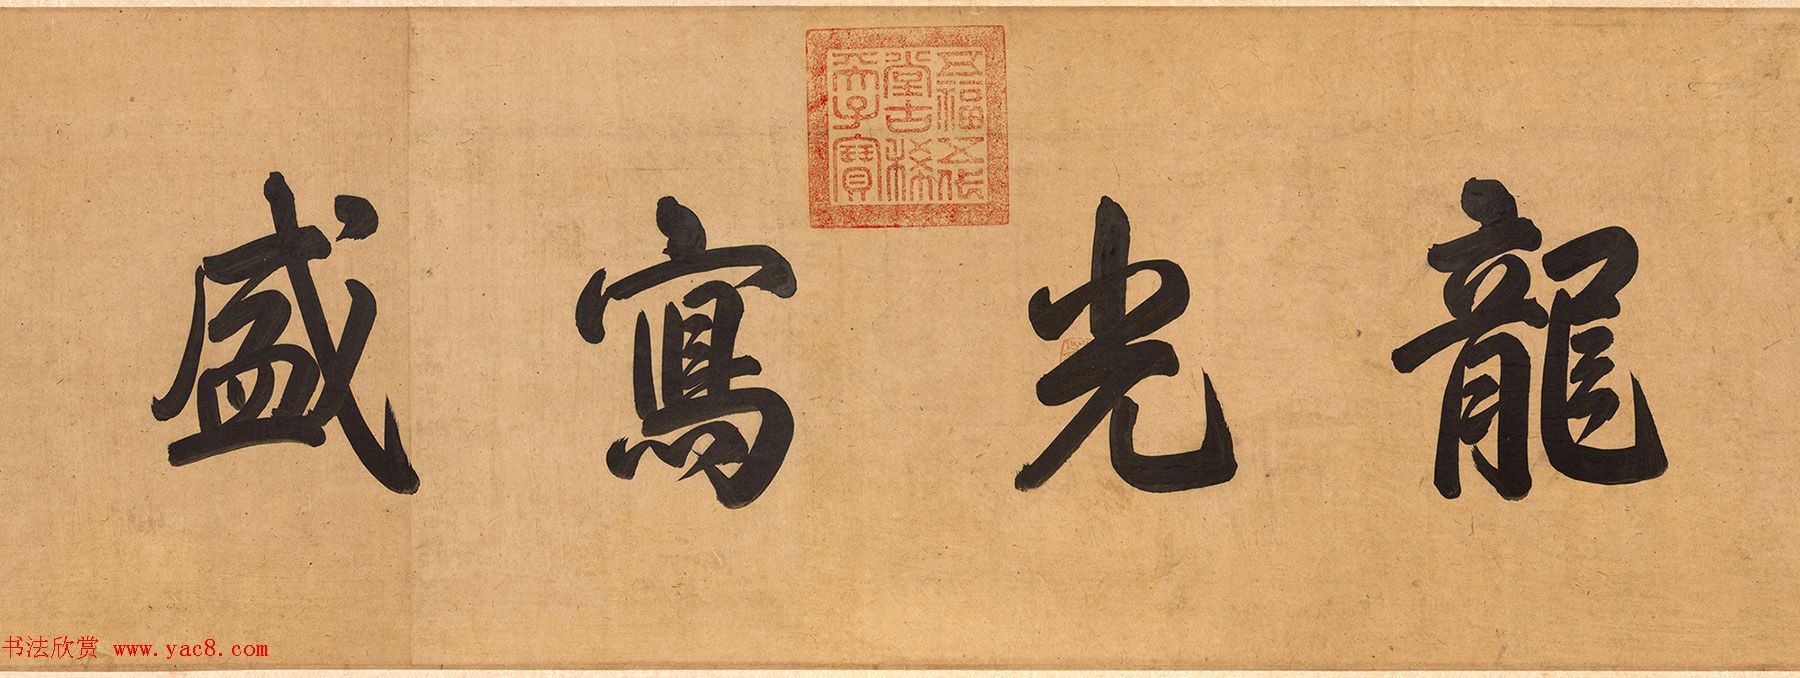 龍光寫盛
五福五代
堂古稀
天子寶
书法欣赏 www.yac8.com